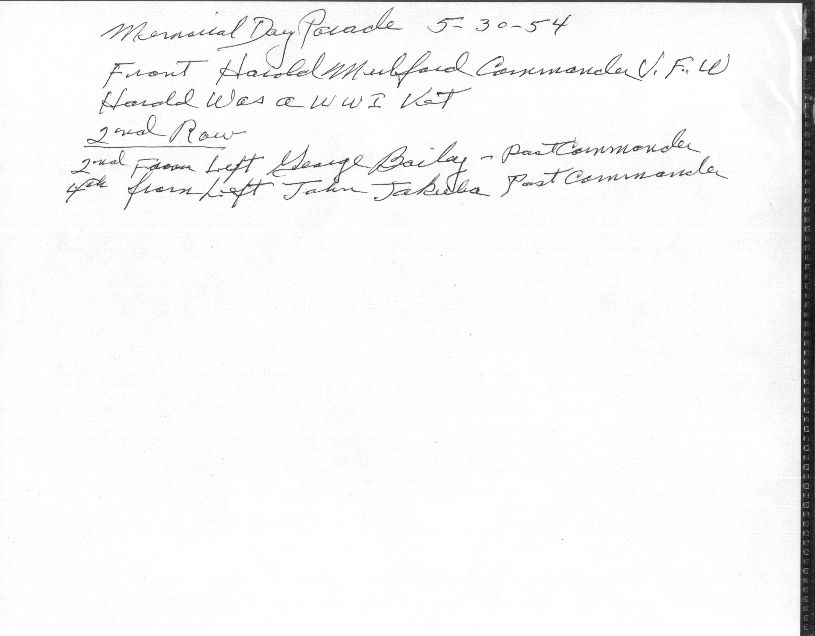 Memorial Day Parade 5-30-54
Front Harold Mulford Commander V.F.W
Harold Was a WWI Vet
2nd Row
2nd From Left George Bailey - Past Commander
4th from Left John Jakuba Past Commander